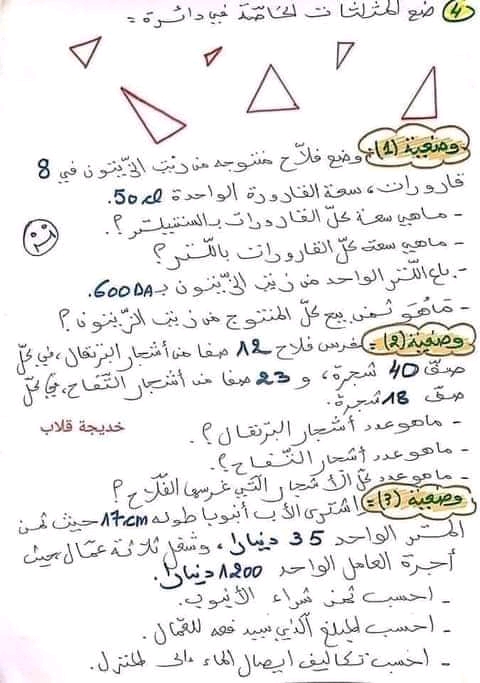 ④ ضع المثلثات الخاصة في دائرة :
وضعية (1): وضع فلاح منتوجه من زيت الزيتون في 8
قارورات، سعة القارورة الواحدة 50cl.
- ماهي سعة كل القارورات بالسنتيلتر؟.
- ماهي سعة كل القارورات باللتر؟
- باع اللتر الواحد من زيت الزيتون بـ 600DA.
- ماهو ثمن بيع كل المنتوج من زيت الزيتون؟
وضعية (2): غرس فلاح 12 صفا من أشجار البرتقال، في كل
صف 40 شجرة، و 23 صفا من أشجار التفاح، في كل
صف 18 شجرة.
خديجة قلاب
- ماهو عدد أشجار البرتقال؟.
- ماهو عدد أشجار التفاح؟.
- ماهو عدد كل الأشجار التي غرسها الفلاح؟
وضعية (3): اشترى الأب أنبوبا طوله 17cm حيث ثمن
المتر الواحد 35 دينارا، وشغل ثلاثة عمال بحيث
أجرة العامل الواحد 1200 دينارا.
- احسب ثمن شراء الأنبوب.
- احسب المبلغ الذي سيدفعه للعمال.
- احسب تكاليف ايصال الماء إلى المنزل.